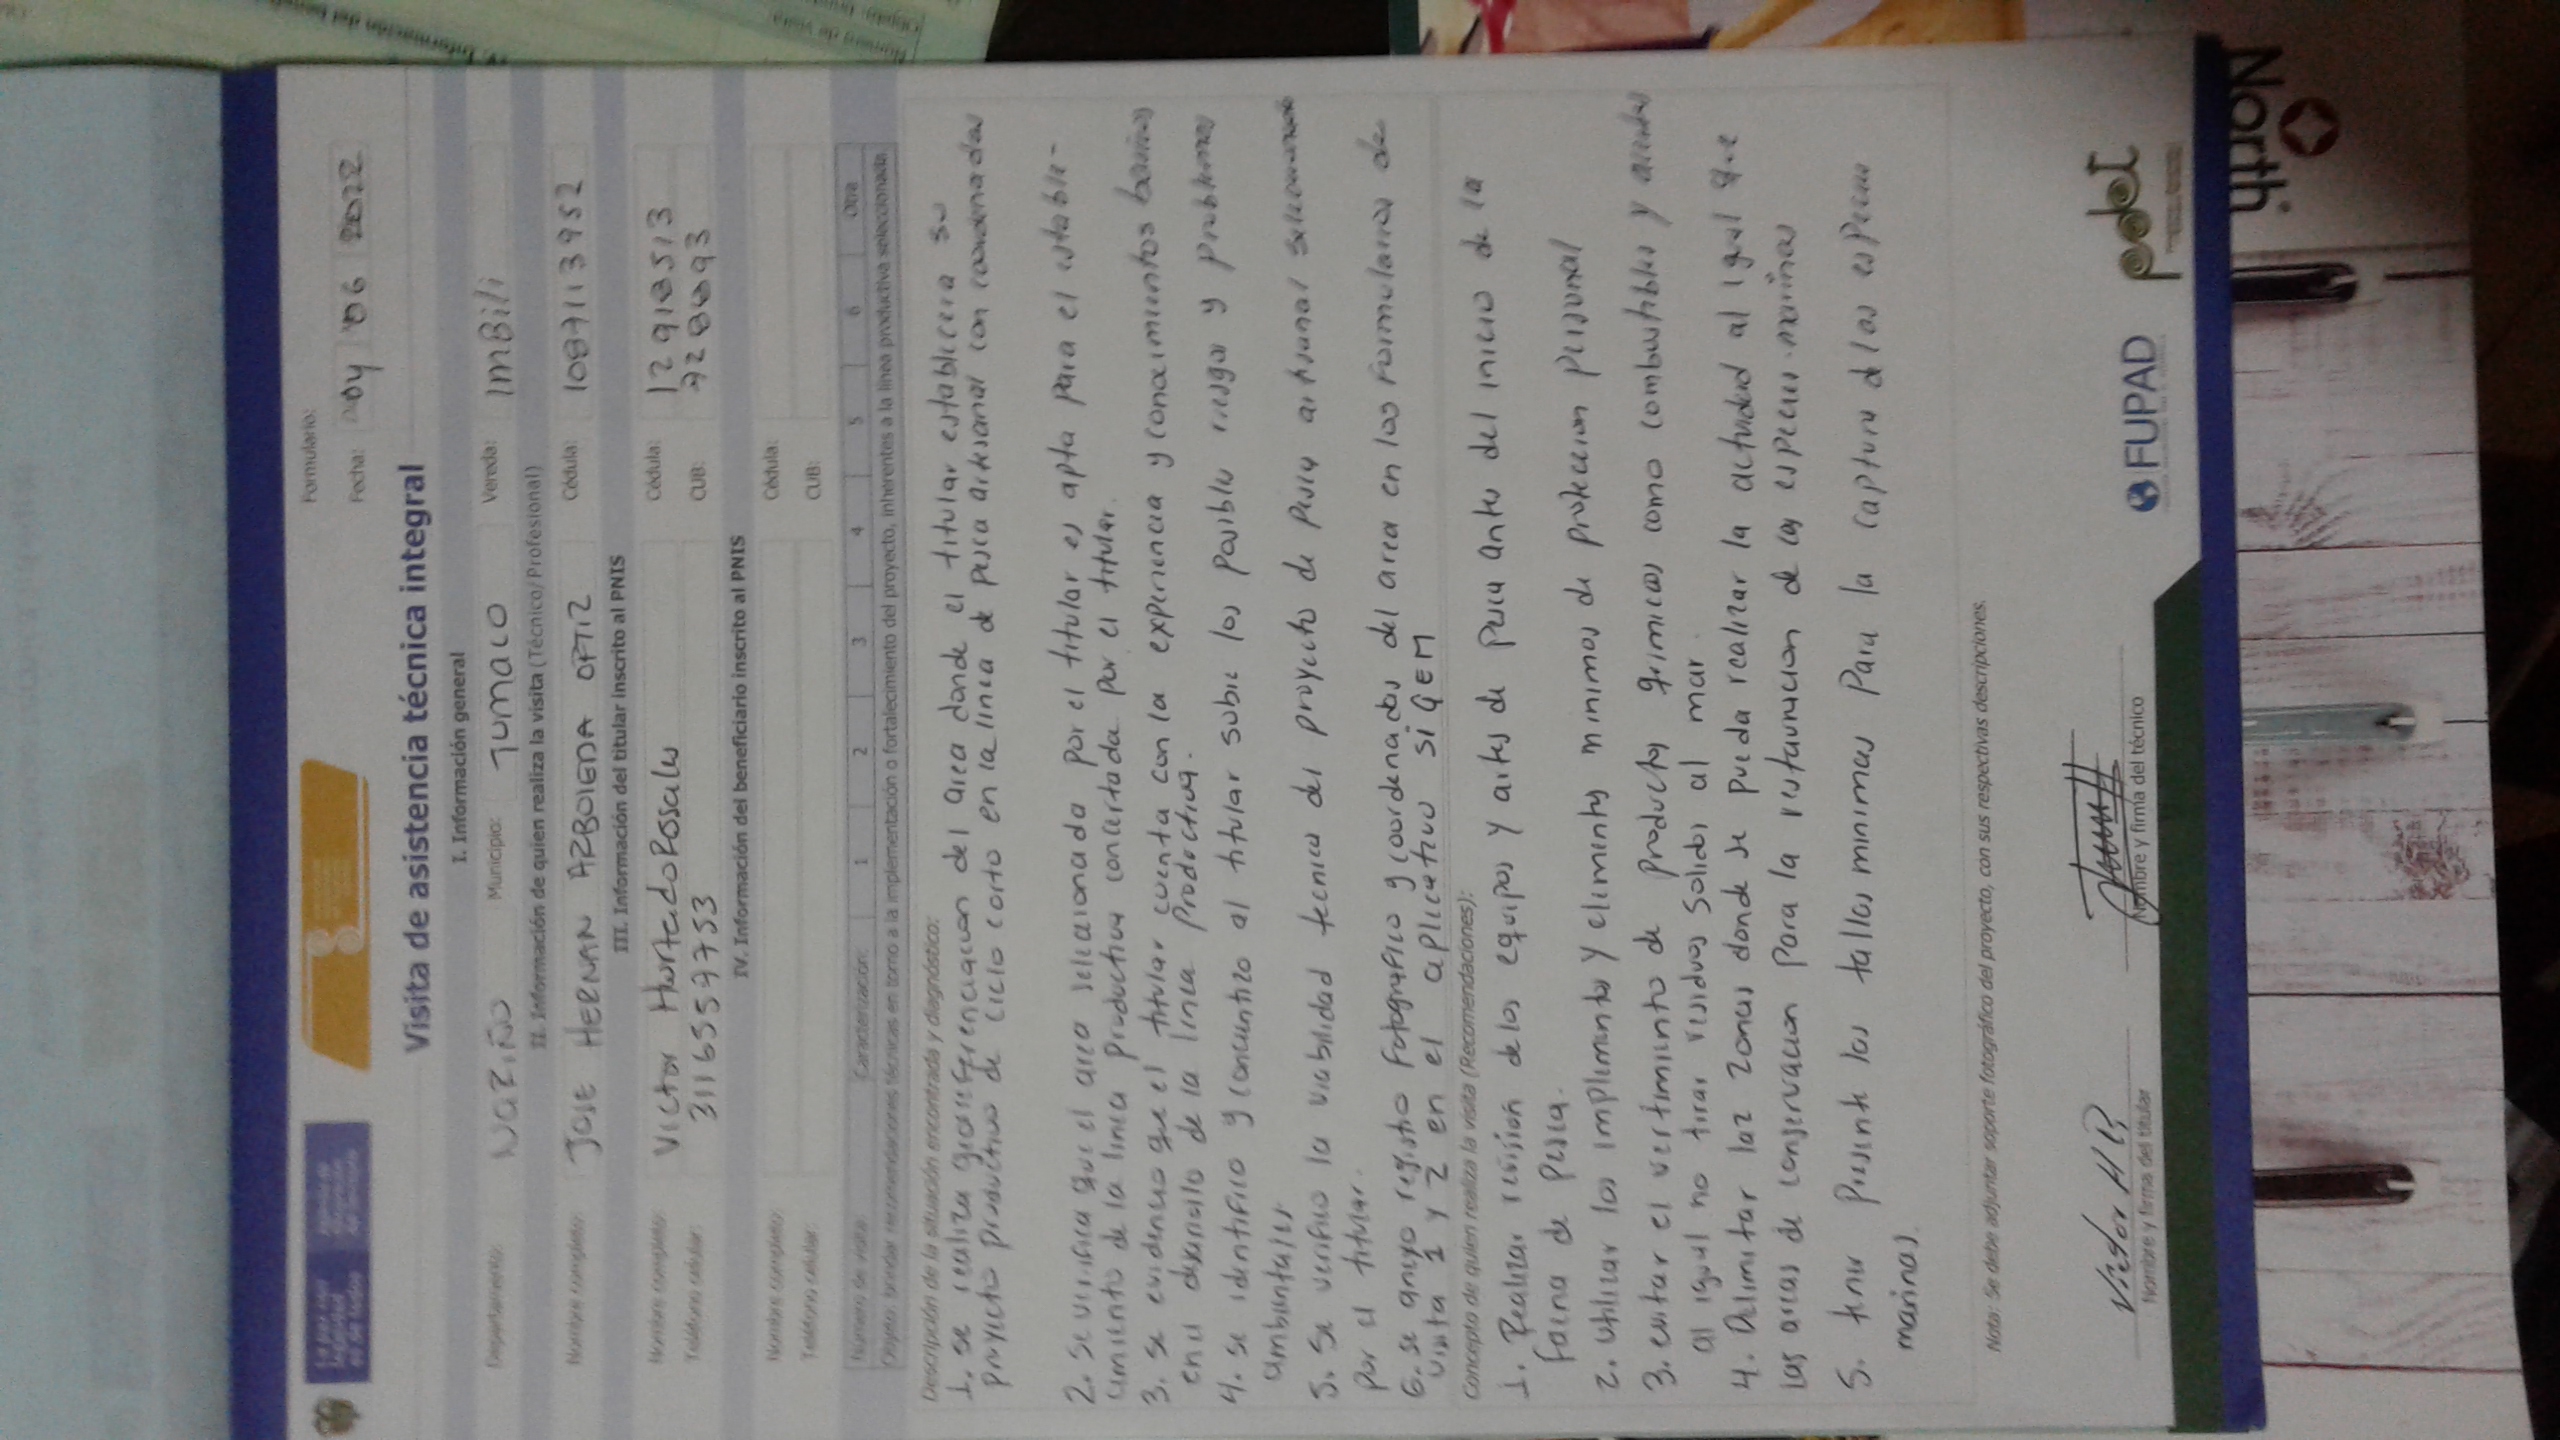 Formulario:
Fecha: 04 06 2022
Visita de asistencia técnica integral
I. Información general
Departamento: NaRiÑo Municipio: Tumaco Vereda: ImBili
II. Información de quien realiza la visita (Técnico/Profesional)
Nombre completo: Jose HERNAN ARBOLEDA ORTIZ Cédula: 1087113952
III. Información del titular inscrito al PNIS
Nombre completo: Victor Hurtado Rosales Cédula: 12918513
Teléfono celular: 3116559753 CUB:
IV. Información del beneficiario inscrito al PNIS
Nombre completo: Cédula:
Teléfono celular: CUB:
Número de visita: Caracterización: 1 2 3 4 5 6 Otra
Objeto: brindar recomendaciones técnicas en torno a la implementación o fortalecimiento del proyecto, inherentes a la línea productiva seleccionada
Descripción de la situación encontrada y diagnóstico:
1. se realiza georeferenciacion del area donde el titular establecera su
proyecto productivo de ciclo corto en la linea de pesca artesanal con coordenadas
2. se verifica que el area selecionada por el titular es apta para el estable-
cimiento de la linea productiva concertada por el titular.
3. se evidencio que el titular cuenta con la experiencia y conocimientos basicos
en el desarrollo de la linea productiva.
4. se identifico y concientizo al titular sobre los posibles riesgos y problemas
ambientales
5. se verifico la viabilidad tecnica del proyecto de pesca artesanal selecionado
por el titular.
6. se anexo registro fotografico y coordenadas del area en los formularios de
visita 1 y 2 en el aplicativo SIGEM
Concepto de quien realiza la visita (Recomendaciones):
1. Realizar revision de los equipos y artes de pesca antes del inicio de la
faena de pesca.
2. utilizar los implementos y elementos minimos de proteccion personal
3. evitar el vertimiento de productos quimicos como combustibles y aceites
al igual no tirar residuos solidos al mar.
4. Delimitar laz zonas donde se pueda realizar la actividad al igual que
las areas de conservacion para la restauracion de las especies marinas
5. tener presente las tallas minimas para la captura de las especies
marinas.
Nota: Se debe adjuntar soporte fotográfico del proyecto, con sus respectivas descripciones.
Victor H R
Nombre y firma del titular Nombre y firma del técnico
FUPAD pdet
North